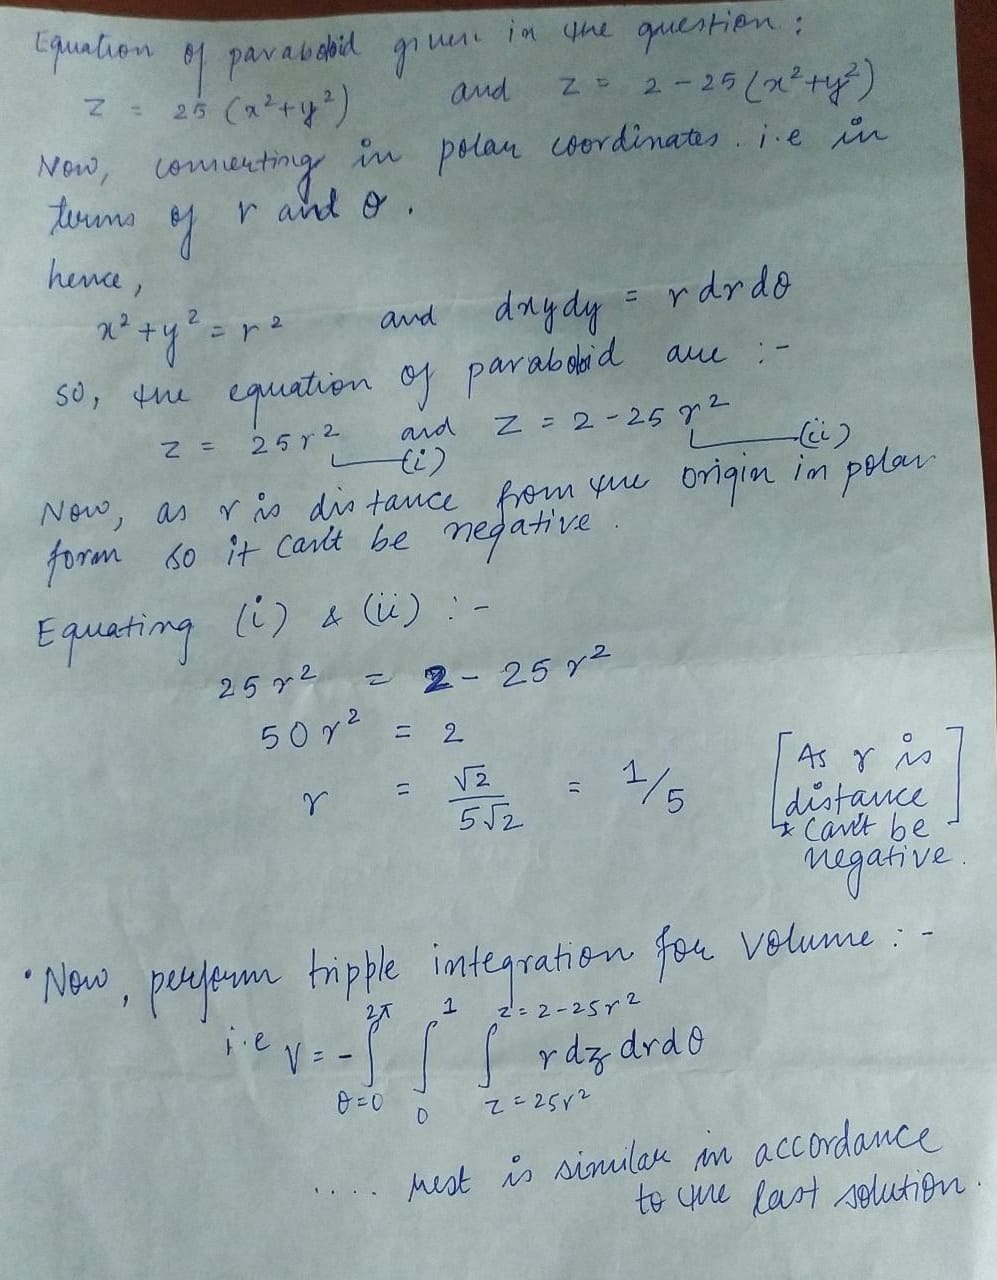 Equation of paraboloid given in the question :
z = 25 (x²+y²) and z = 2 - 25 (x²+y²)
Now, converting in polar coordinates. i.e in
terms of r and θ.
hence,
x² + y² = r² and dxydy = r dr dθ
so, the equation of paraboloid are :-
z = 25r² (i) and z = 2 - 25 r² (ii)
Now, as r is distance from the origin in polar
form so it can't be negative.
Equating (i) & (ii) :-
25 r² = 2 - 25 r²
50 r² = 2
r = √2/5√2 = 1/5 [As r is
distance
& can't be
negative.]
• Now, perform tripple integration for volume :-
i.e V = - ∫θ=0^2π ∫0^1 ∫z=25r²^z=2-25r² r dz dr dθ
.... rest is similar in accordance
to the last solution.